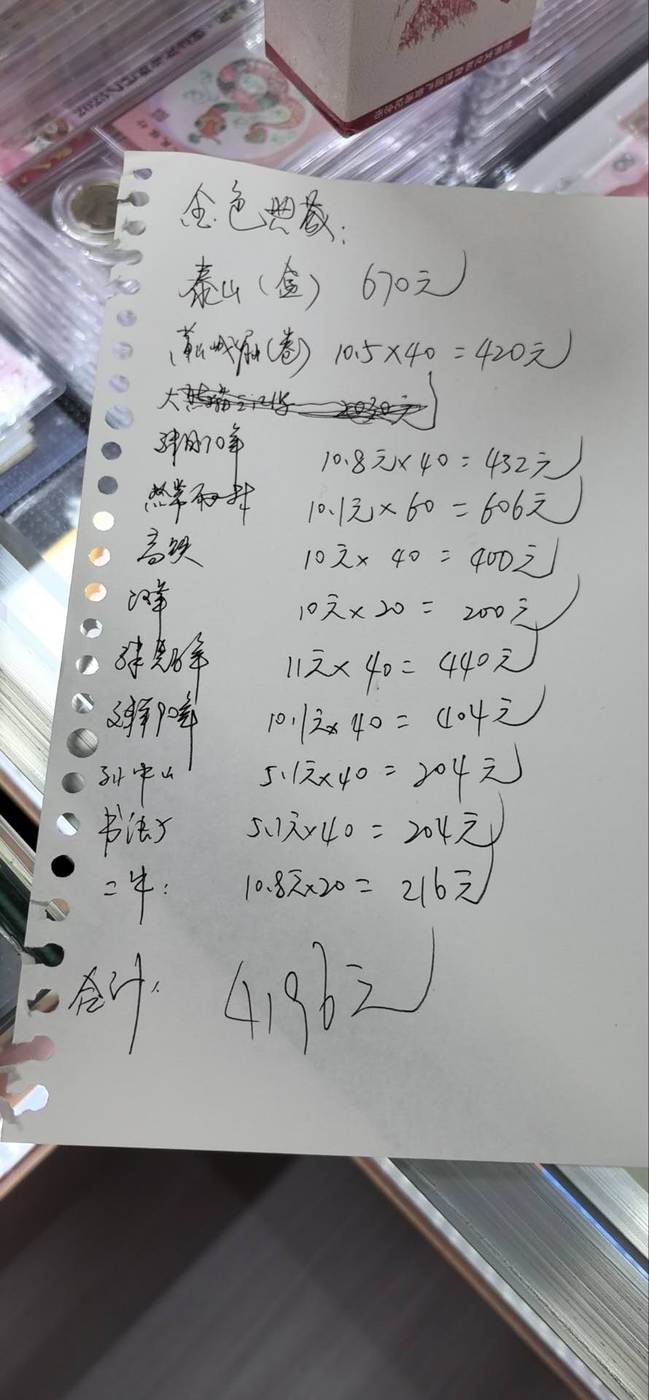 金色典藏:
泰山(盒) 670元
(卷) 10.5×40=420元
大 2030元
建国70年 10.8元×40=432元
10.1元×60=606元
高铁 10元×40=400元
10元×20=200元
11元×40=440元
90年 10.1元×40=404元
孙中山 5.1元×40=204元
书法 5.1元×40=204元
二牛: 10.8元×20=216元
合计: 4196元